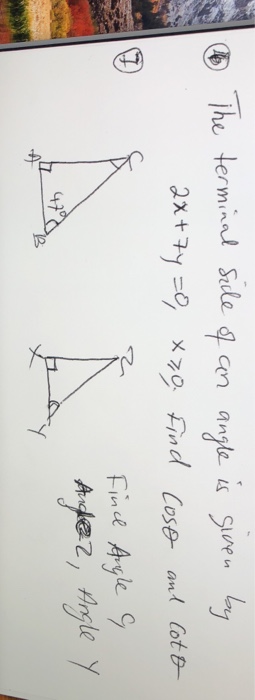 ⑥ The terminal side of an angle is given by
2x + 7y = 0, x ≥ 0. Find Cosθ and Cotθ
⑦
C
A
B
47°
Z
X
Y
Find Angle C,
Angle Z, Angle Y